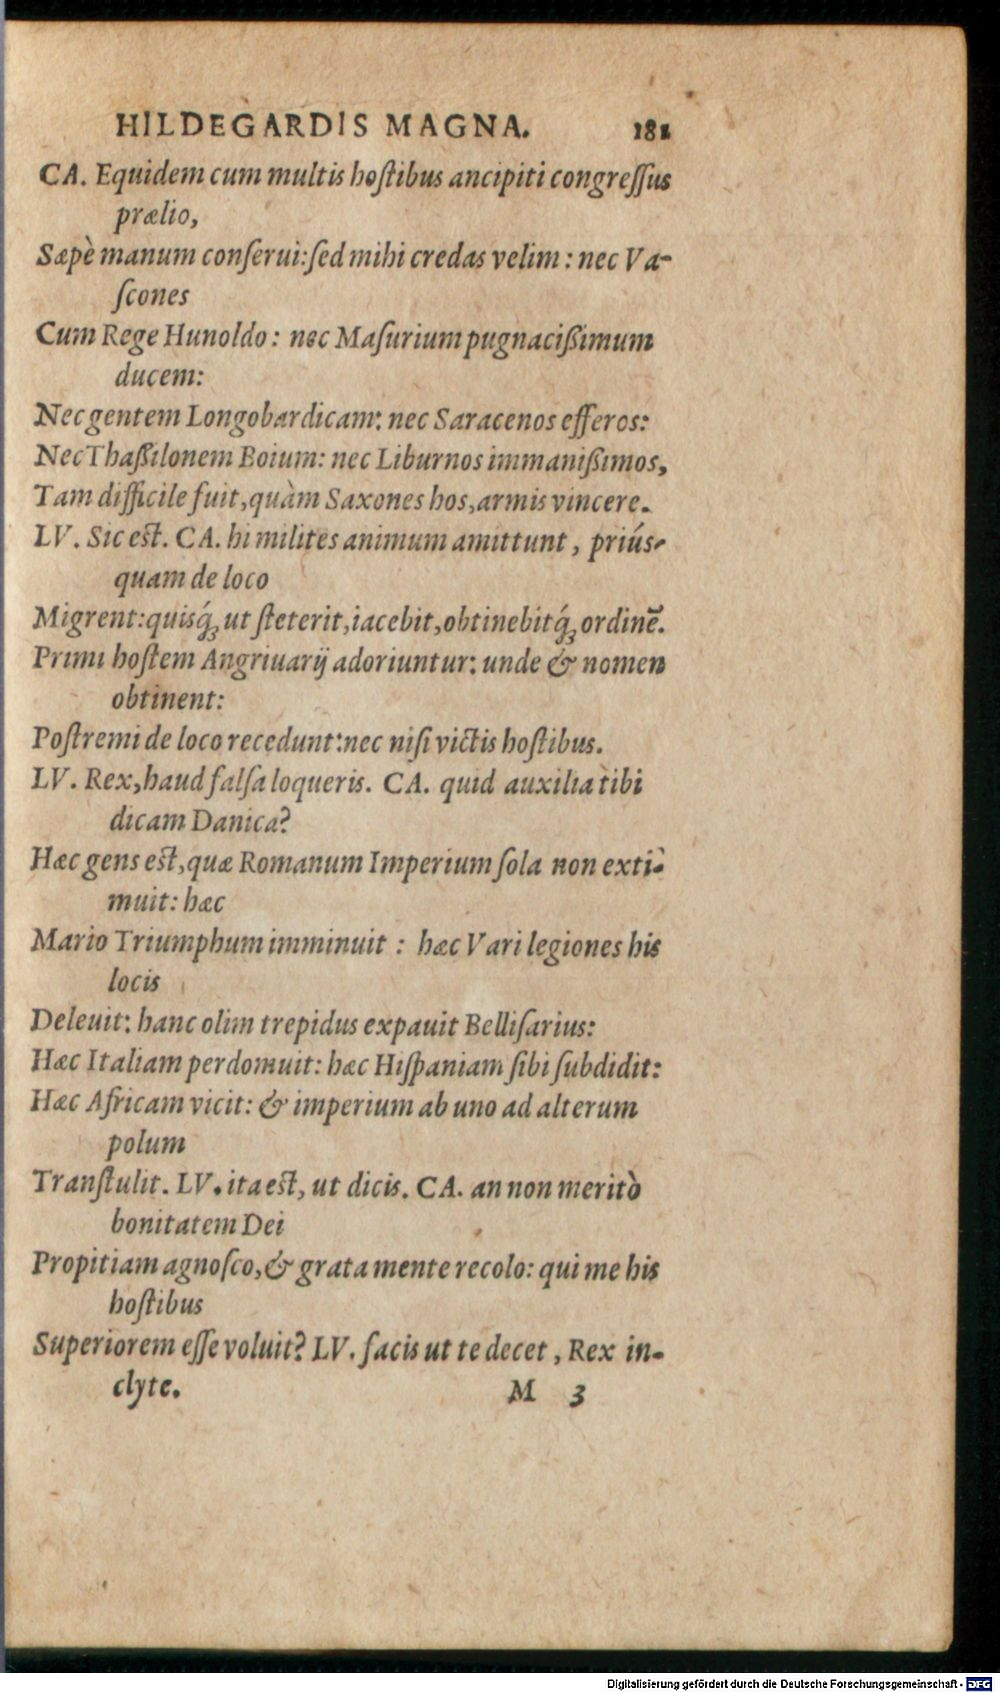 HILDEGARDIS MAGNA. 181
CA. Equidem cum multis hoſtibus ancipiti congreſſus
prælio,
Sæpè manum conſerui: ſed mihi credas velim: nec Va-
ſcones
Cum Rege Hunoldo: nec Maſurium pugnacißimum
ducem:
Nec gentem Longobardicam: nec Saracenos efferos:
Nec Thaßilonem Boium: nec Liburnos immanißimos,
Tam difficile fuit, quàm Saxones hos, armis vincere.
LV. Sic est. CA. hi milites animum amittunt, priús-
quam de loco
Migrent: quisq́ꝫ ut ſteterit, iacebit, obtinebitq́ꝫ ordinē.
Primi hoſtem Angriuarij adoriuntur: unde & nomen
obtinent:
Poſtremi de loco recedunt: nec niſi victis hoſtibus.
LV. Rex, haud falſa loqueris. CA. quid auxilia tibi
dicam Danica?
Hæc gens est, quæ Romanum Imperium ſola non exti-
muit: hæc
Mario Triumphum imminuit: hæc Vari legiones his
locis
Deleuit: hanc olim trepidus expauit Belliſarius:
Hæc Italiam perdomuit: hæc Hiſpaniam ſibi ſubdidit:
Hæc Africam vicit: & imperium ab uno ad alterum
polum
Tranſtulit. LV. ita est, ut dicis. CA. an non meritò
bonitatem Dei
Propitiam agnoſco, & grata mente recolo: qui me his
hoſtibus
Superiorem eſſe voluit? LV. facis ut te decet, Rex in-
clyte. M 3
Digitalisierung gefördert durch die Deutsche Forschungsgemeinschaft - DFG